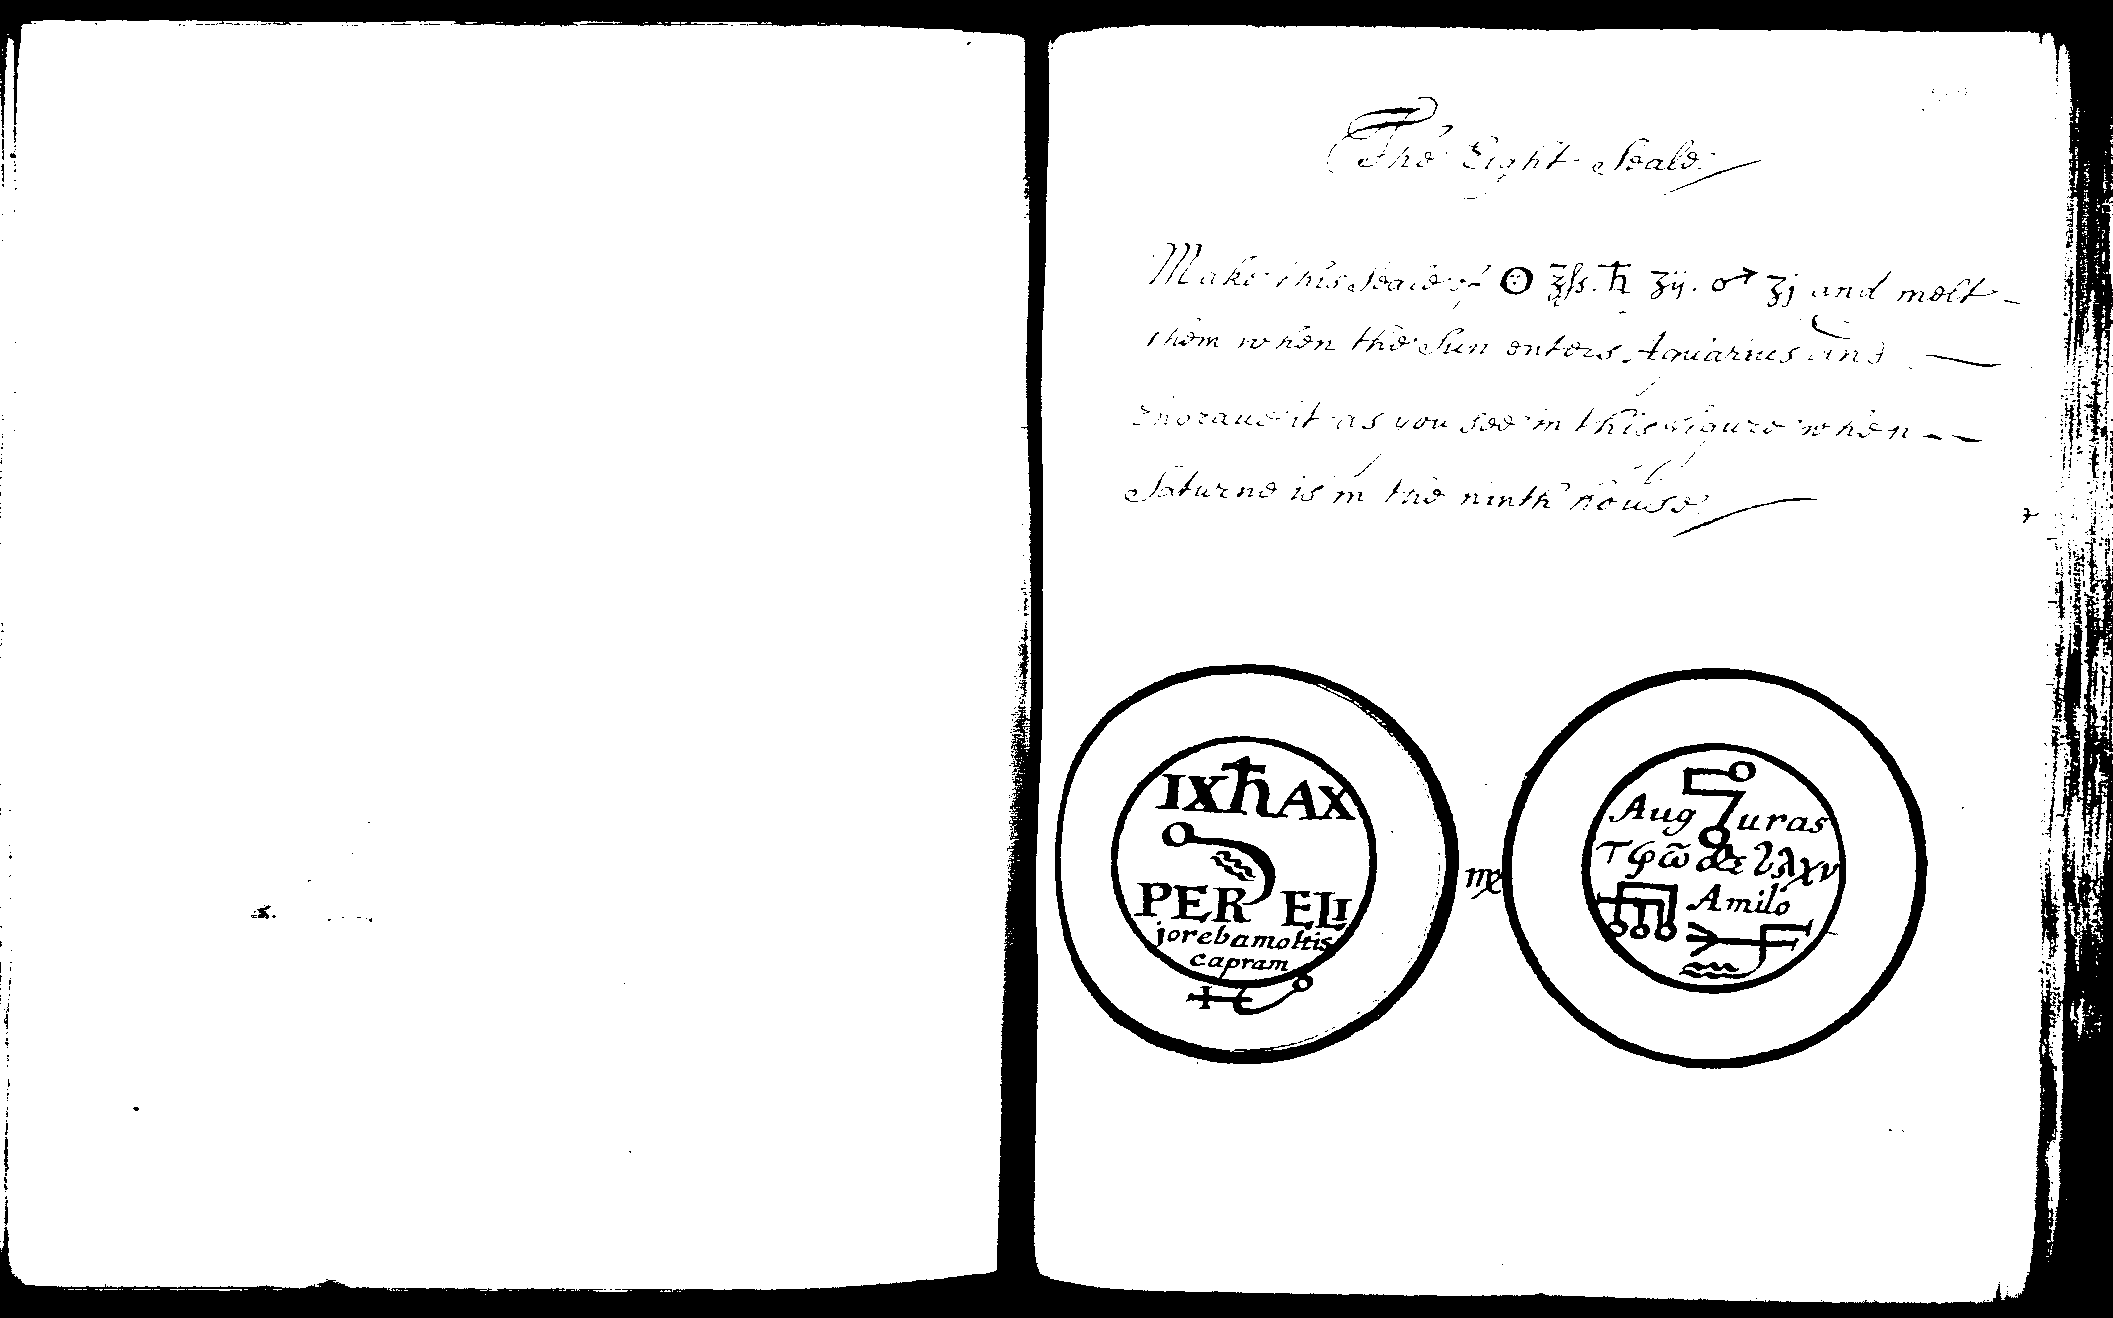 The Eight Seale
Make this Seale of ☉ ʒſs. ♄ ʒij. ♂ ʒj and melt
them when the Sun enters Aquarius and
engraue it as you see in this figure when
Saturne is in the ninth house
IX♄AX
PER ELI
jorebamoltis
capram
♍
Aug uras
Amilo